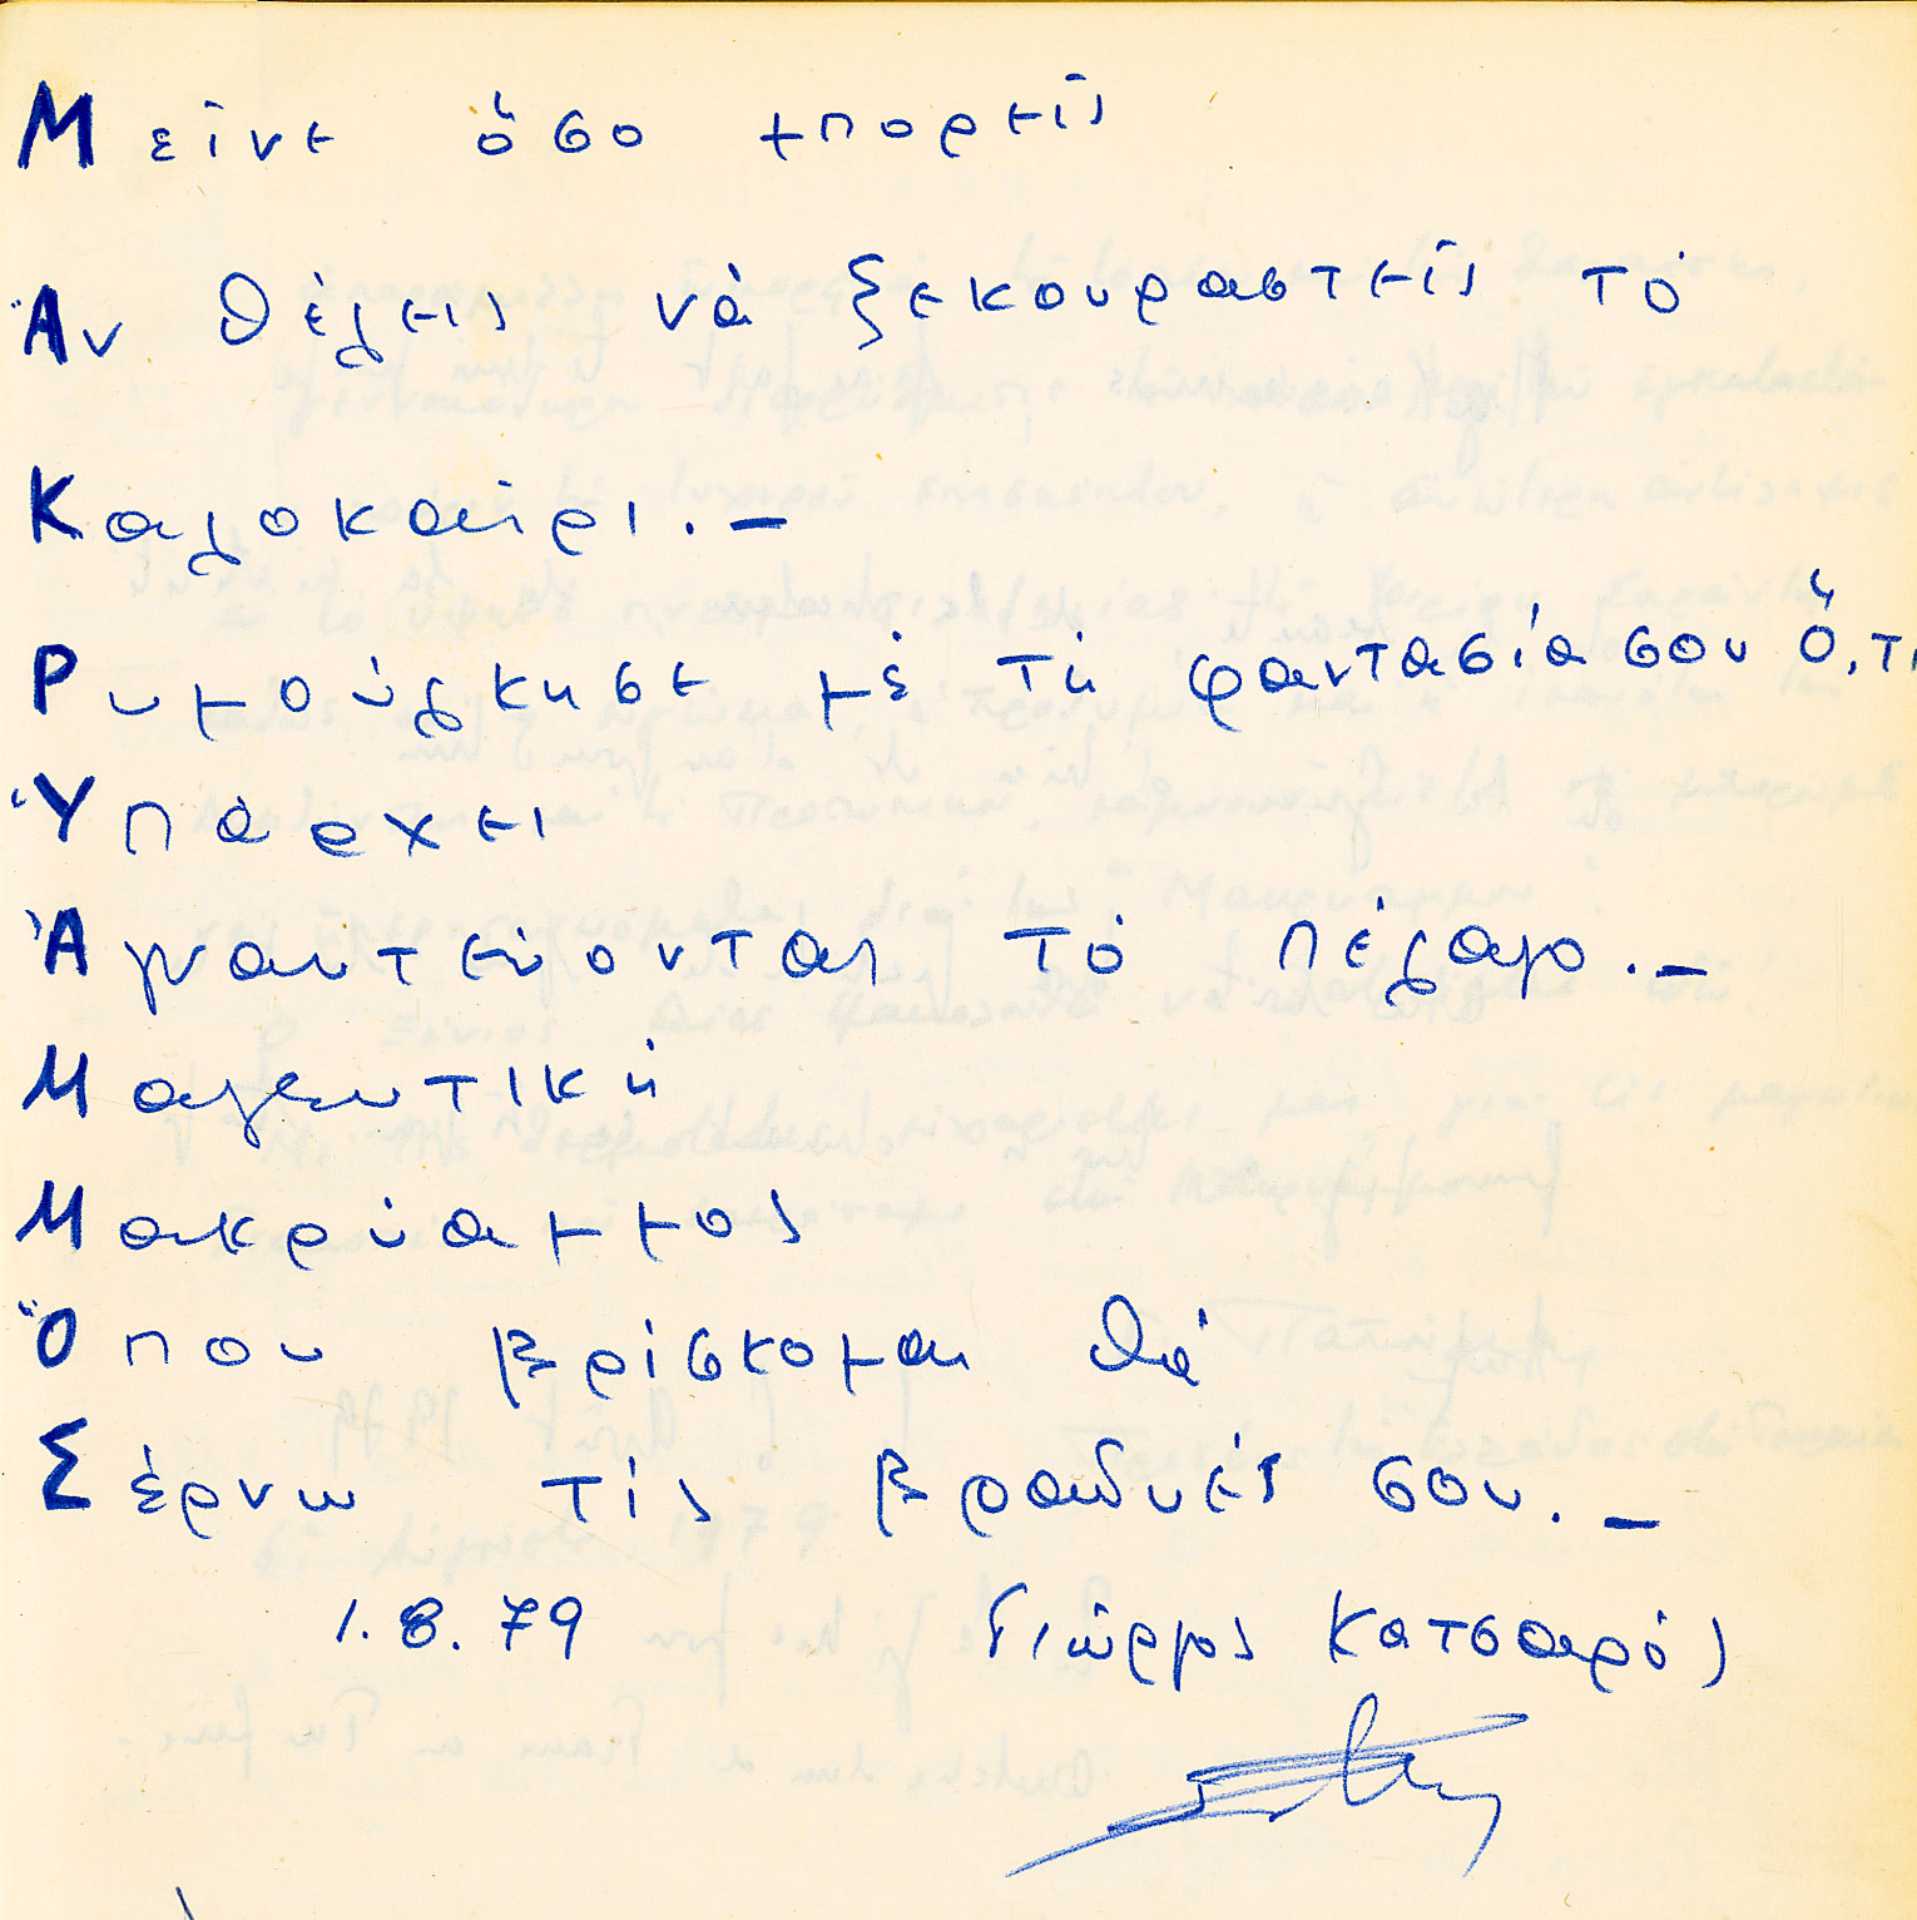 Μεῖνε ὅσο μπορεῖς
Ἄν θέλεις νά ξεκουραστεῖς τό
Καλοκαίρι.-
Ρυμούλκησε μέ τή φαντασία σου ὅ,τι
Ὑπάρχει
Ἀγναντεύοντας τό πέλαγο.-
Μαγευτική
Μακρύαμμος
Ὅπου βρίσκομαι θά
Σέρνω τίς βραδυές σου.-
1.8.79 Γιώργος Κατσαρός